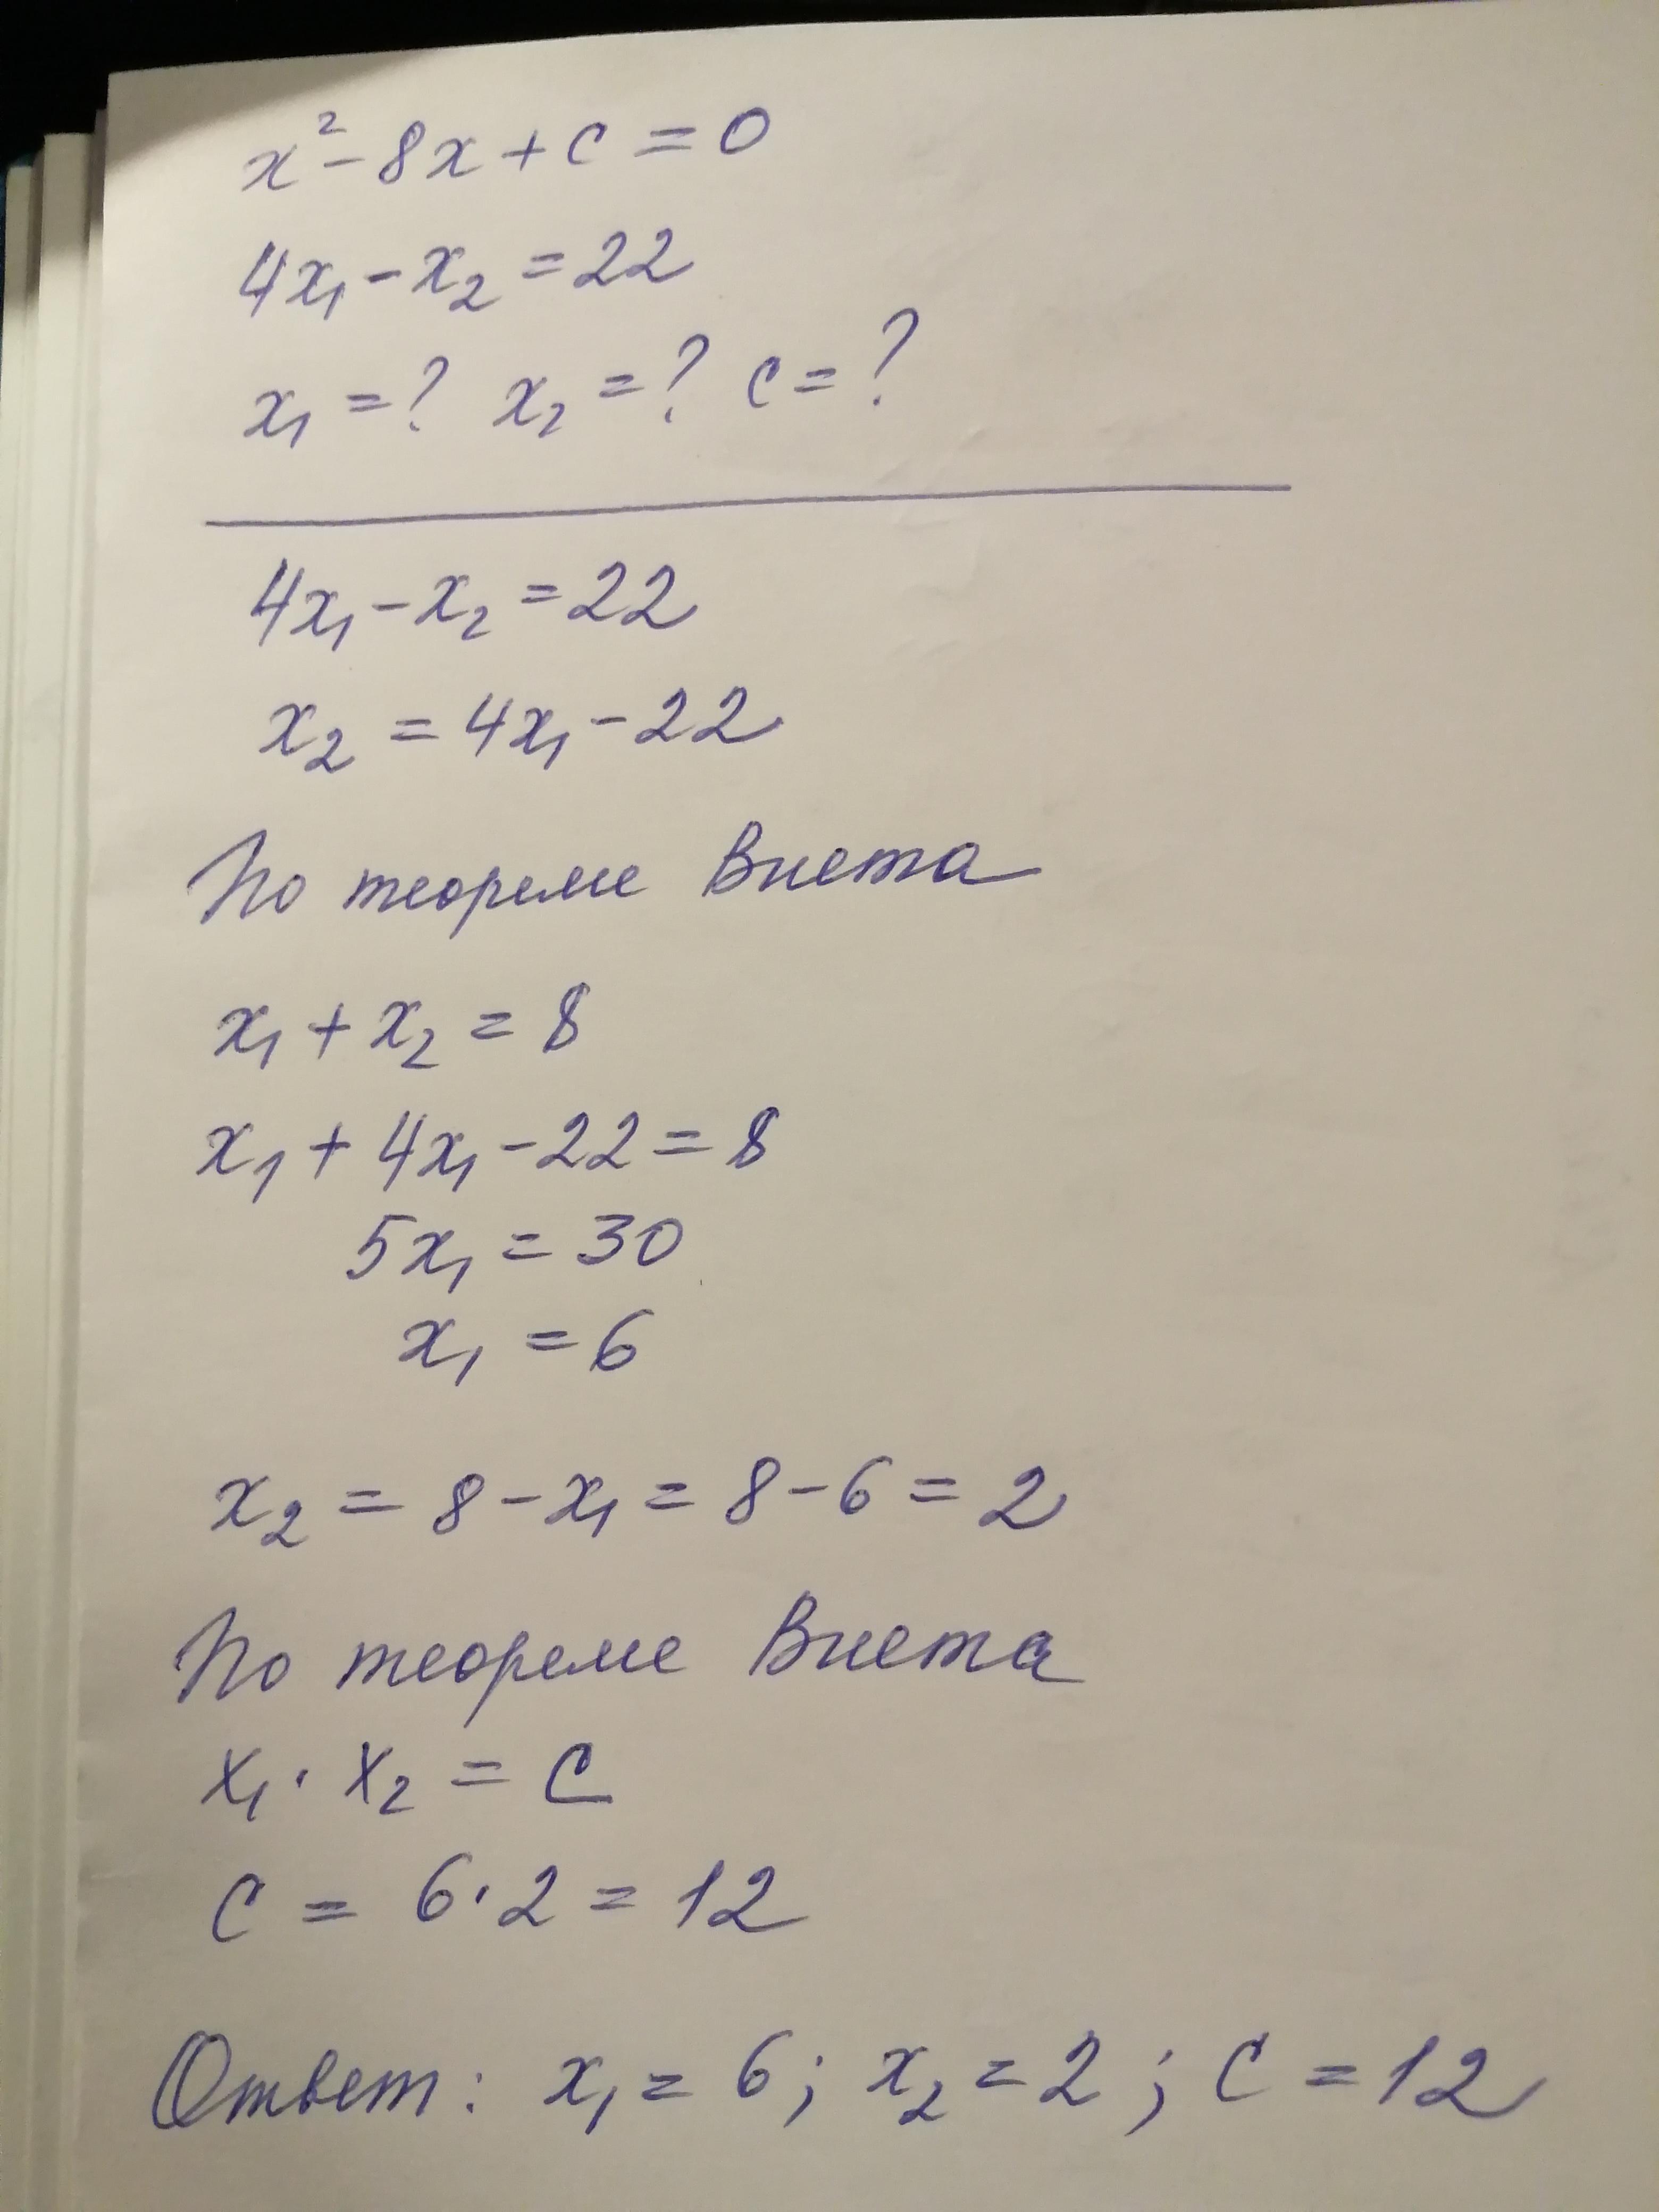 x² - 8x + c = 0
4x₁ - x₂ = 22
x₁ = ? x₂ = ? c = ?
4x₁ - x₂ = 22
x₂ = 4x₁ - 22
По теореме Виета
x₁ + x₂ = 8
x₁ + 4x₁ - 22 = 8
5x₁ = 30
x₁ = 6
x₂ = 8 - x₁ = 8 - 6 = 2
По теореме Виета
x₁ · x₂ = c
c = 6 · 2 = 12
Ответ: x₁ = 6; x₂ = 2; c = 12